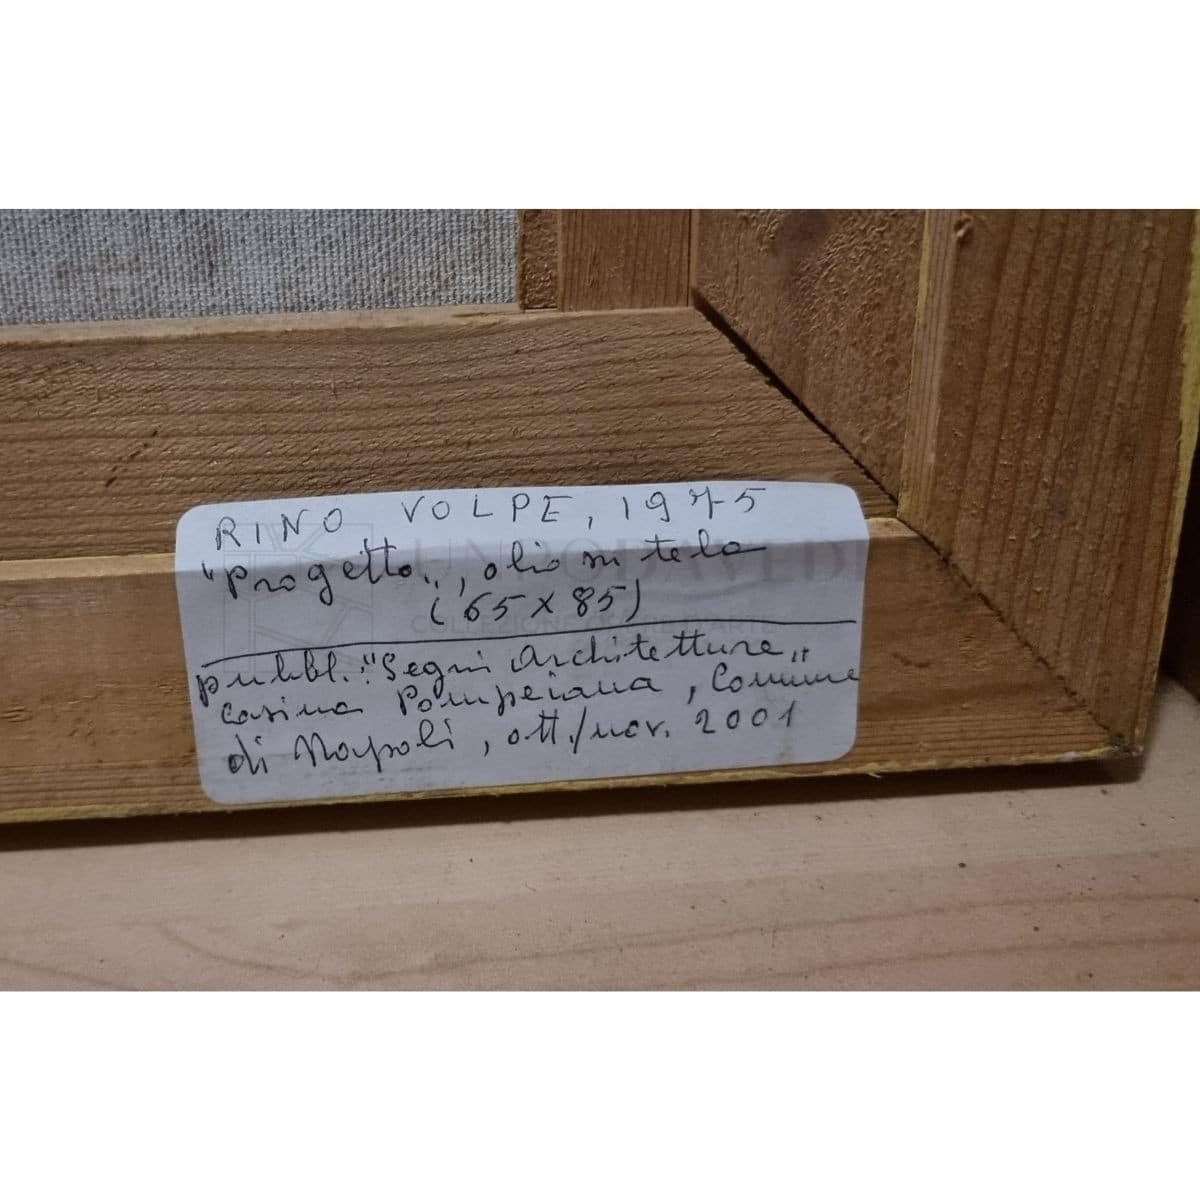 RINO VOLPE, 1975
"Progetto", olio su tela
(65 x 85)
pubbl.: "Segni Architetture"
Casina Pompeiana, Comune
di Napoli, ott./nov. 2001